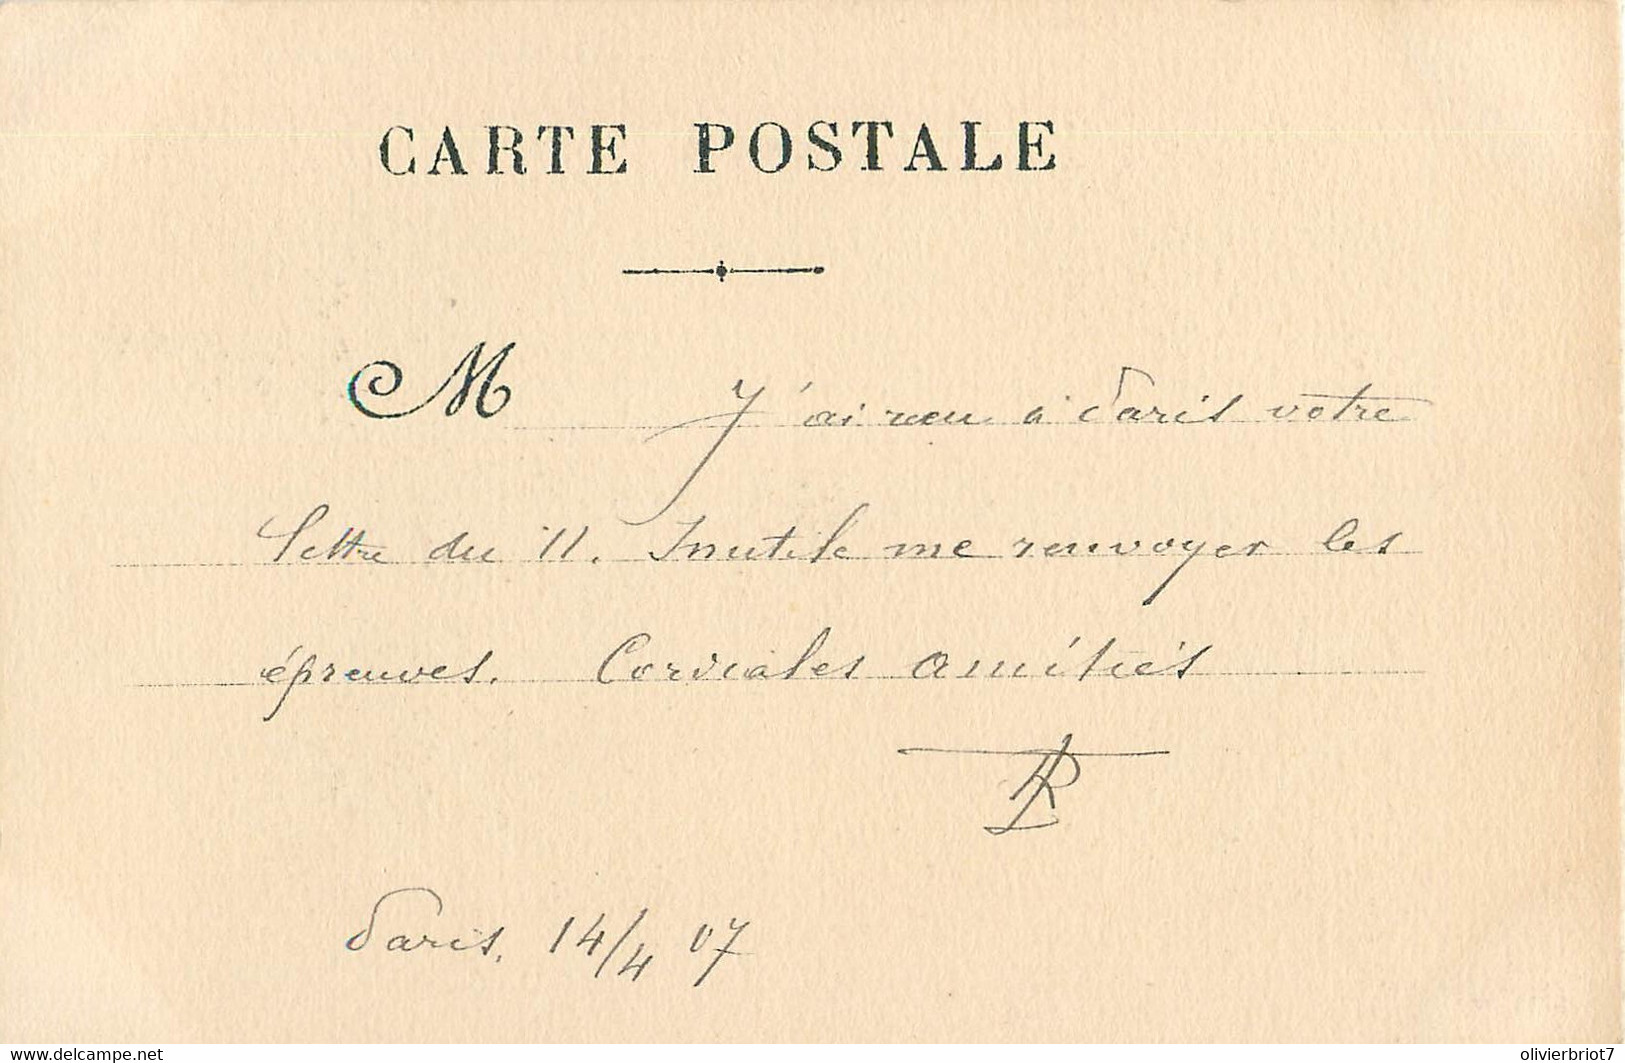 CARTE POSTALE
M J'ai reçu à Paris votre
lettre du 11. Inutile me renvoyer les
épreuves. Cordiales amitiés
Paris, 14/4 07
www.delcampe.net
olivierbriot7